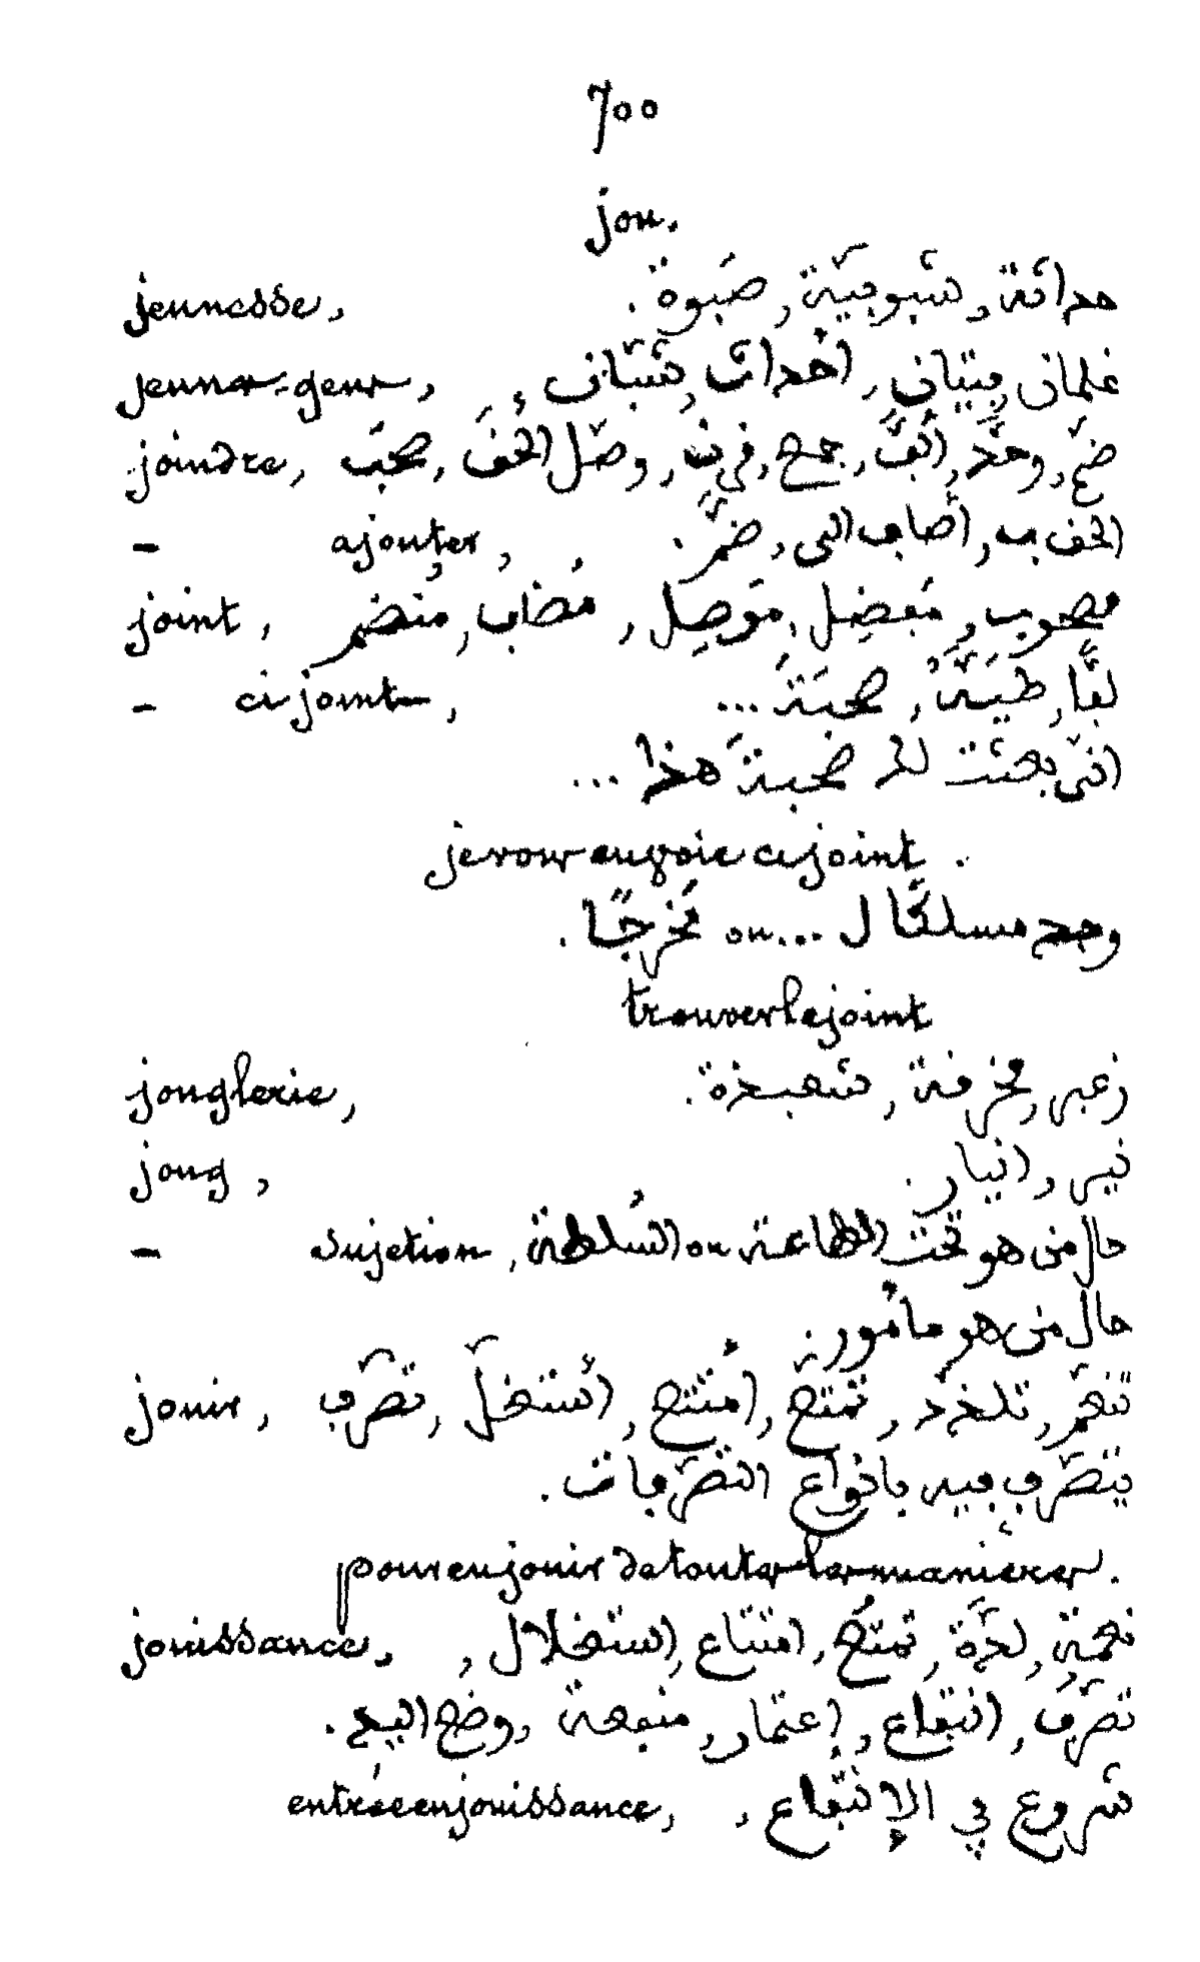 700
jou.
jeunesse, حداثة, شبوبيّة, صَبوة.
jeunes-gens, غلمان, فتيان, أحداث, شبّان,
joindre, ضمّ, وحّد, ألّف, جمع, قرن, وصّل, ألحق, صحب
- ajouter, ألحق ب, أضاف الى, ضمّ.
joint, مصحوب, متّصِل, مُضاف, مُنضم
- ci joint, لفّا, طيّةً, صحبةً...
انّي بعثت لكم صحبةَ هذا...
je vous envoie ci joint.
وجد مسلكًا ل... ou مَخرجًا.
trouver le joint
jonglerie, زعبر, مخرقة, شعبذة.
joug, نير, انيار.
- sujetion, حال من هو تحت الطاعة ou السُلطة,
حال من هو مأمور.
jouir, تنعّم, تلذذ, تمتّع, إمتتع, إستغلّ, تصرّف
يتصرّف فيه بانواع التصرّفات.
pour en jouir de toutes les manières.
jouissance, نعمة, لذّة, تمتّع, امتتاع, إستغلال,
تصرّف, انتفاع, إعتمار, منفعة, وضع اليد.
entrée en jouissance, شروع في الإنتفاع,